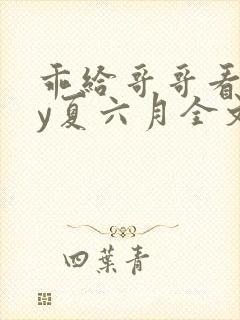 乖给哥哥看
y夏六月全文
四葉青